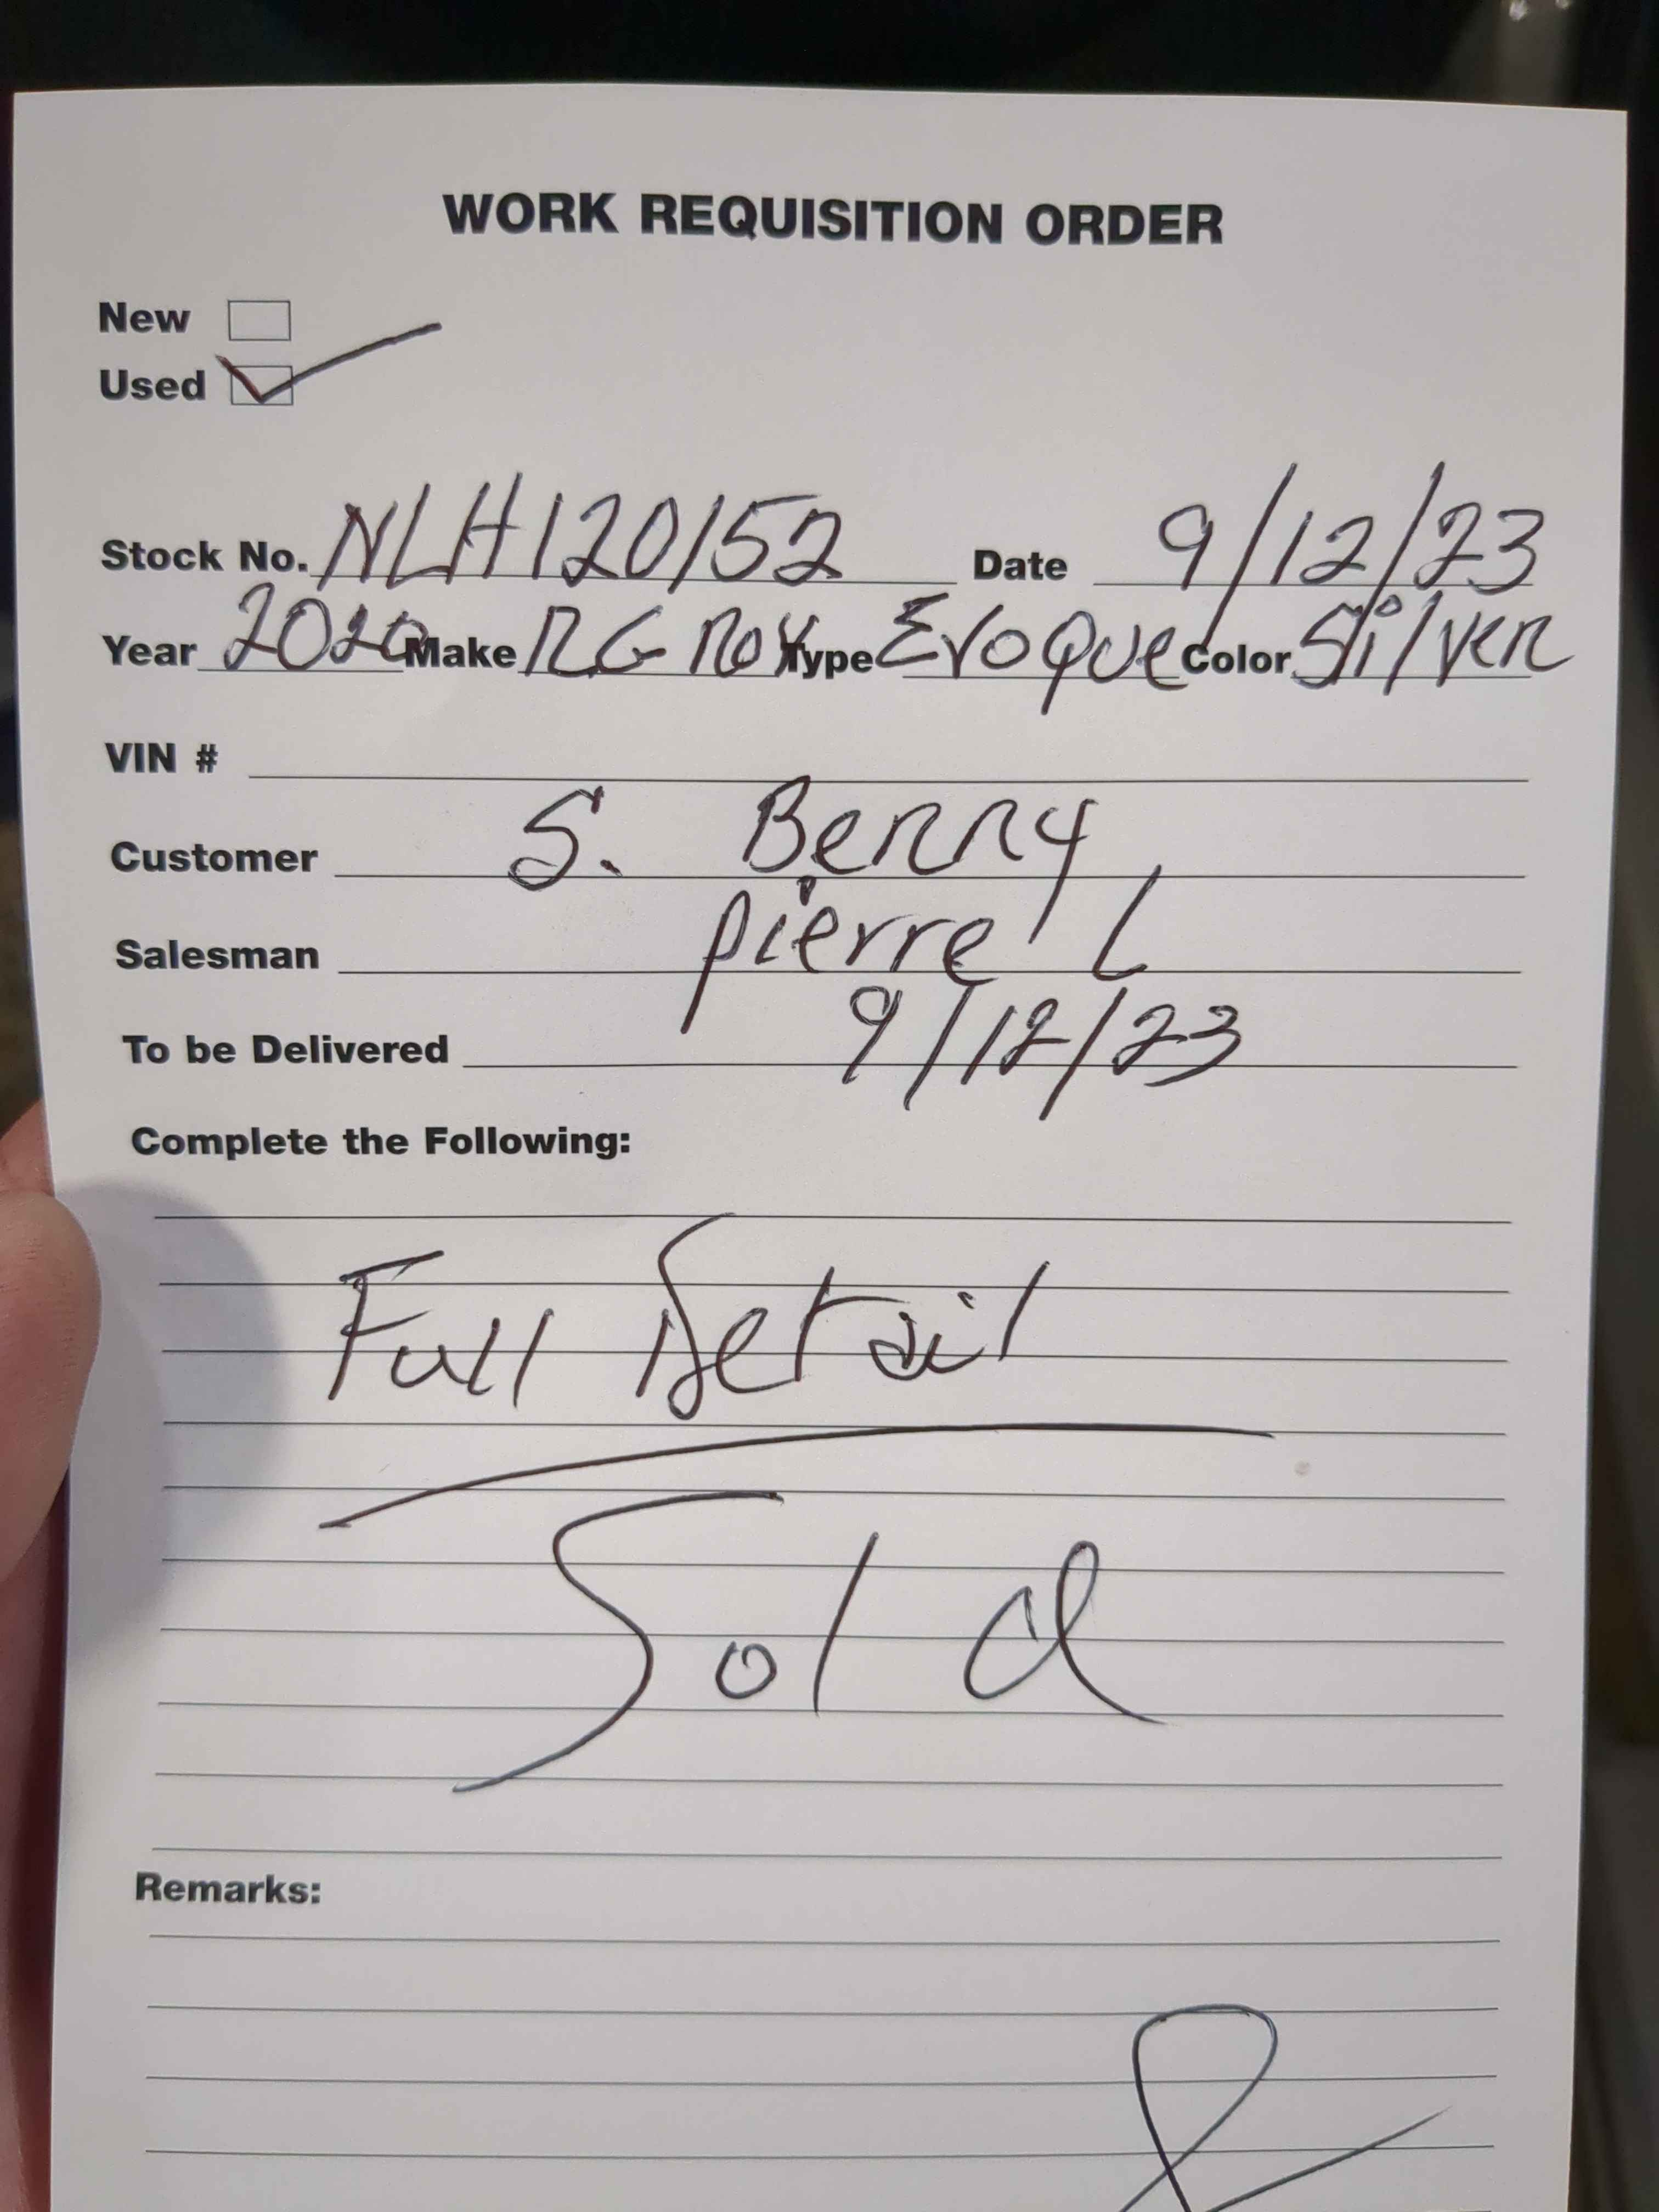 WORK REQUISITION ORDER
New
Used
Stock No. NLH120152 Date 9/12/23
Year 2020 Make RG Rov Type Evoque Color Silver
VIN #
Customer S. Berry
Salesman pierre L
To be Delivered 9/12/23
Complete the Following:
Full Detail
Sold
Remarks: